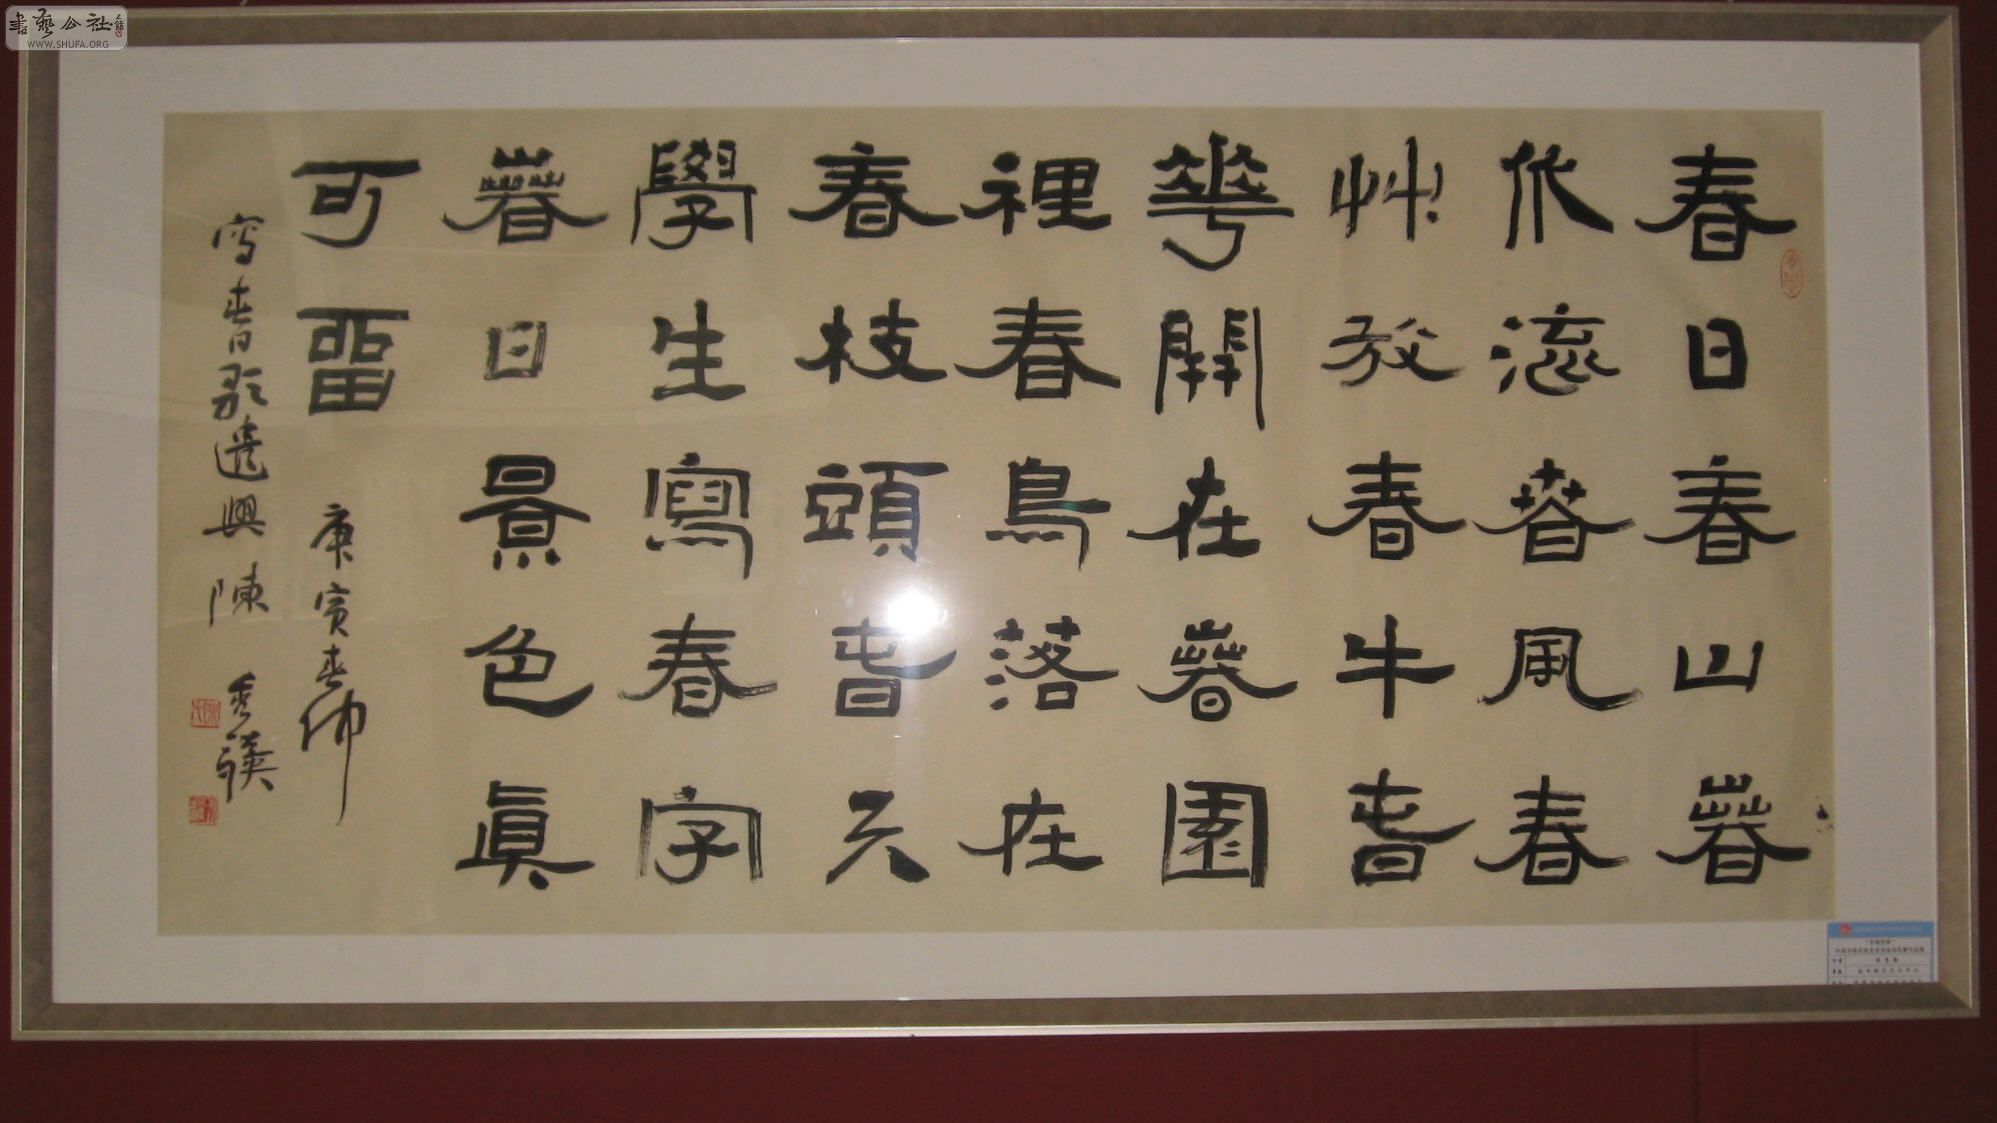 書藝公社
WWW.SHUFA.ORG
春日春山春
水流春風春
艸放春牛春
華開在春園
裡春鳥落在
春枝頭春天
學生寫春字
春日景色真
可畱
庚寅春仲
寫春歌遣興 陳秀